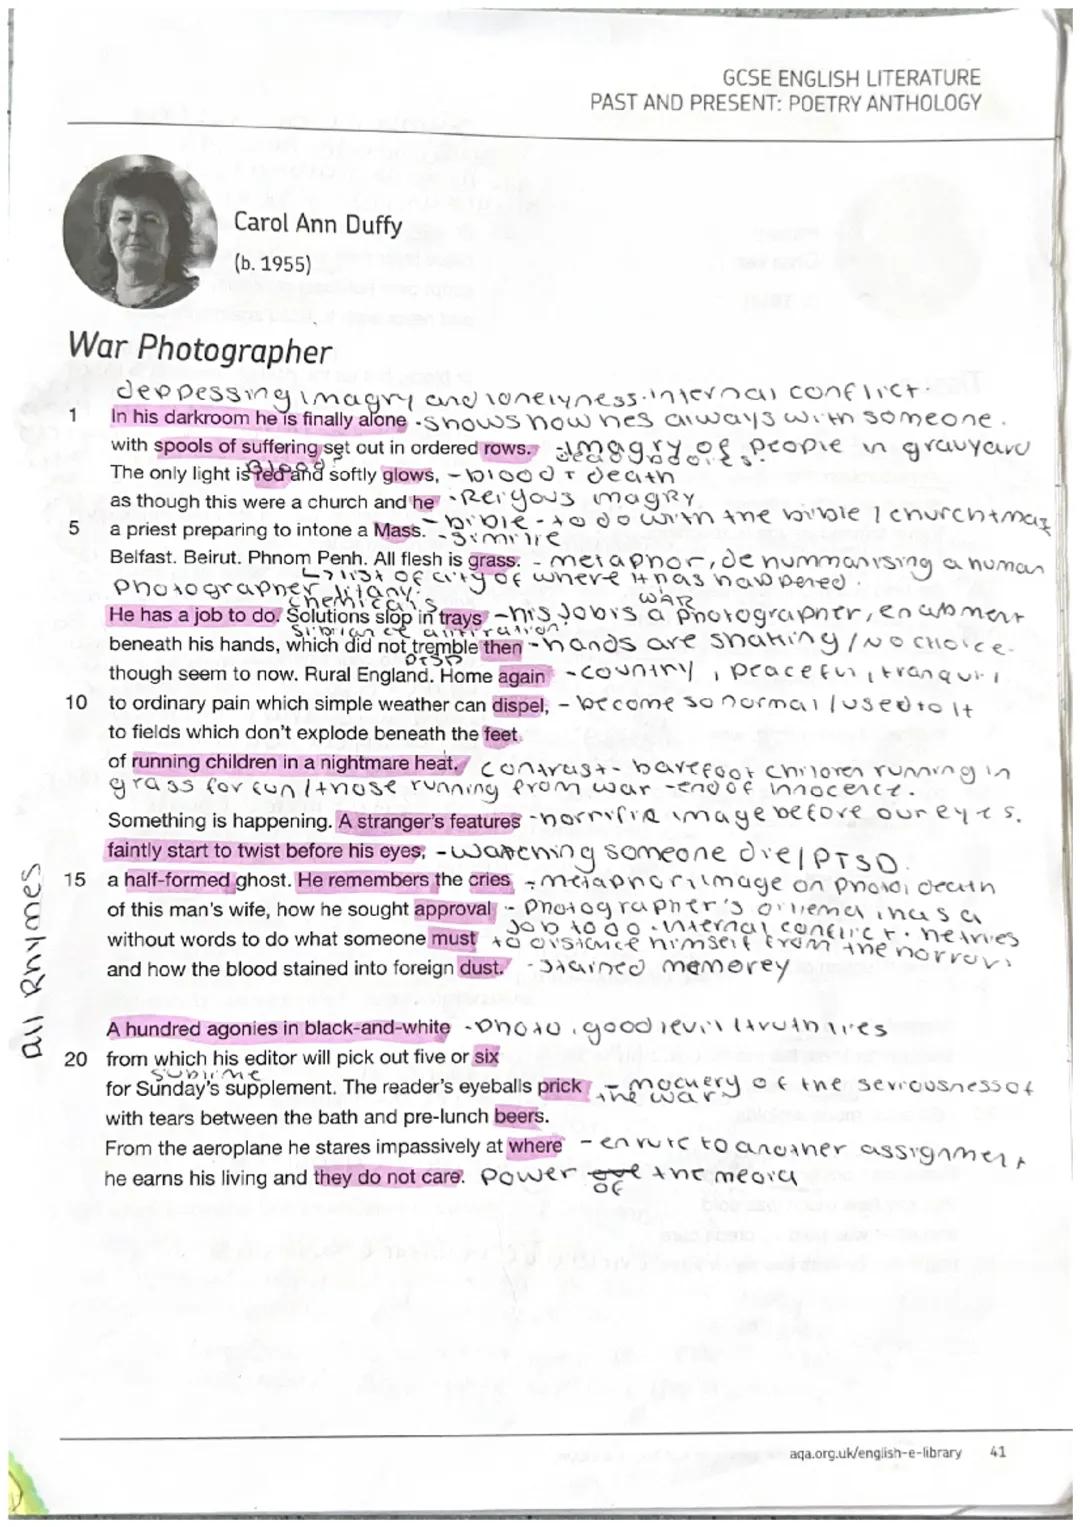 GCSE ENGLISH LITERATURE
PAST AND PRESENT: POETRY ANTHOLOGY
Carol Ann Duffy
(b. 1955)
War Photographer
deppessing imagry and lonelyness. internal conflict.
1 In his darkroom he is finally alone - shows how hes always with someone.
with spools of suffering set out in ordered rows. - Imagry of people in grauyard
dead bodies.
Blood
The only light is red and softly glows, - blood + death
as though this were a church and he - Reigous imagry
5 a priest preparing to intone a Mass. - bible - to do with the bible / church + maz
- similie
Belfast. Beirut. Phnom Penh. All flesh is grass. - metaphor, denummanising a human
↳ list of city of where it has happened.
photographer litany.
chemicals WAR
He has a job to do. Solutions slop in trays - his job is a photographer, enabment
sibiance alitiration
beneath his hands, which did not tremble then - hands are shaking / No choice.
PTSD
though seem to now. Rural England. Home again - country, peaceful, tranquil
10 to ordinary pain which simple weather can dispel, - become so normal / used to it
to fields which don't explode beneath the feet
of running children in a nightmare heat. contrast - barefoot children running in
grass for fun / those running from war - end of innocence.
Something is happening. A stranger's features - horrific image before our eyes.
faintly start to twist before his eyes, - watching someone die / PTSD.
15 a half-formed ghost. He remembers the cries - metaphor, image on photo, death
of this man's wife, how he sought approval - photographer's dilema, has a
job to do. internal conflict. he tries
without words to do what someone must to distance himself from the horror.
and how the blood stained into foreign dust. - stained memorey
all Rhymes
A hundred agonies in black-and-white - photo, good / evil / truth lies
20 from which his editor will pick out five or six
sublime
for Sunday's supplement. The reader's eyeballs prick - mockery of the seriousness of
the war
with tears between the bath and pre-lunch beers.
From the aeroplane he stares impassively at where - en rute to another assignment
he earns his living and they do not care. power of the media
aqa.org.uk/english-e-library 41